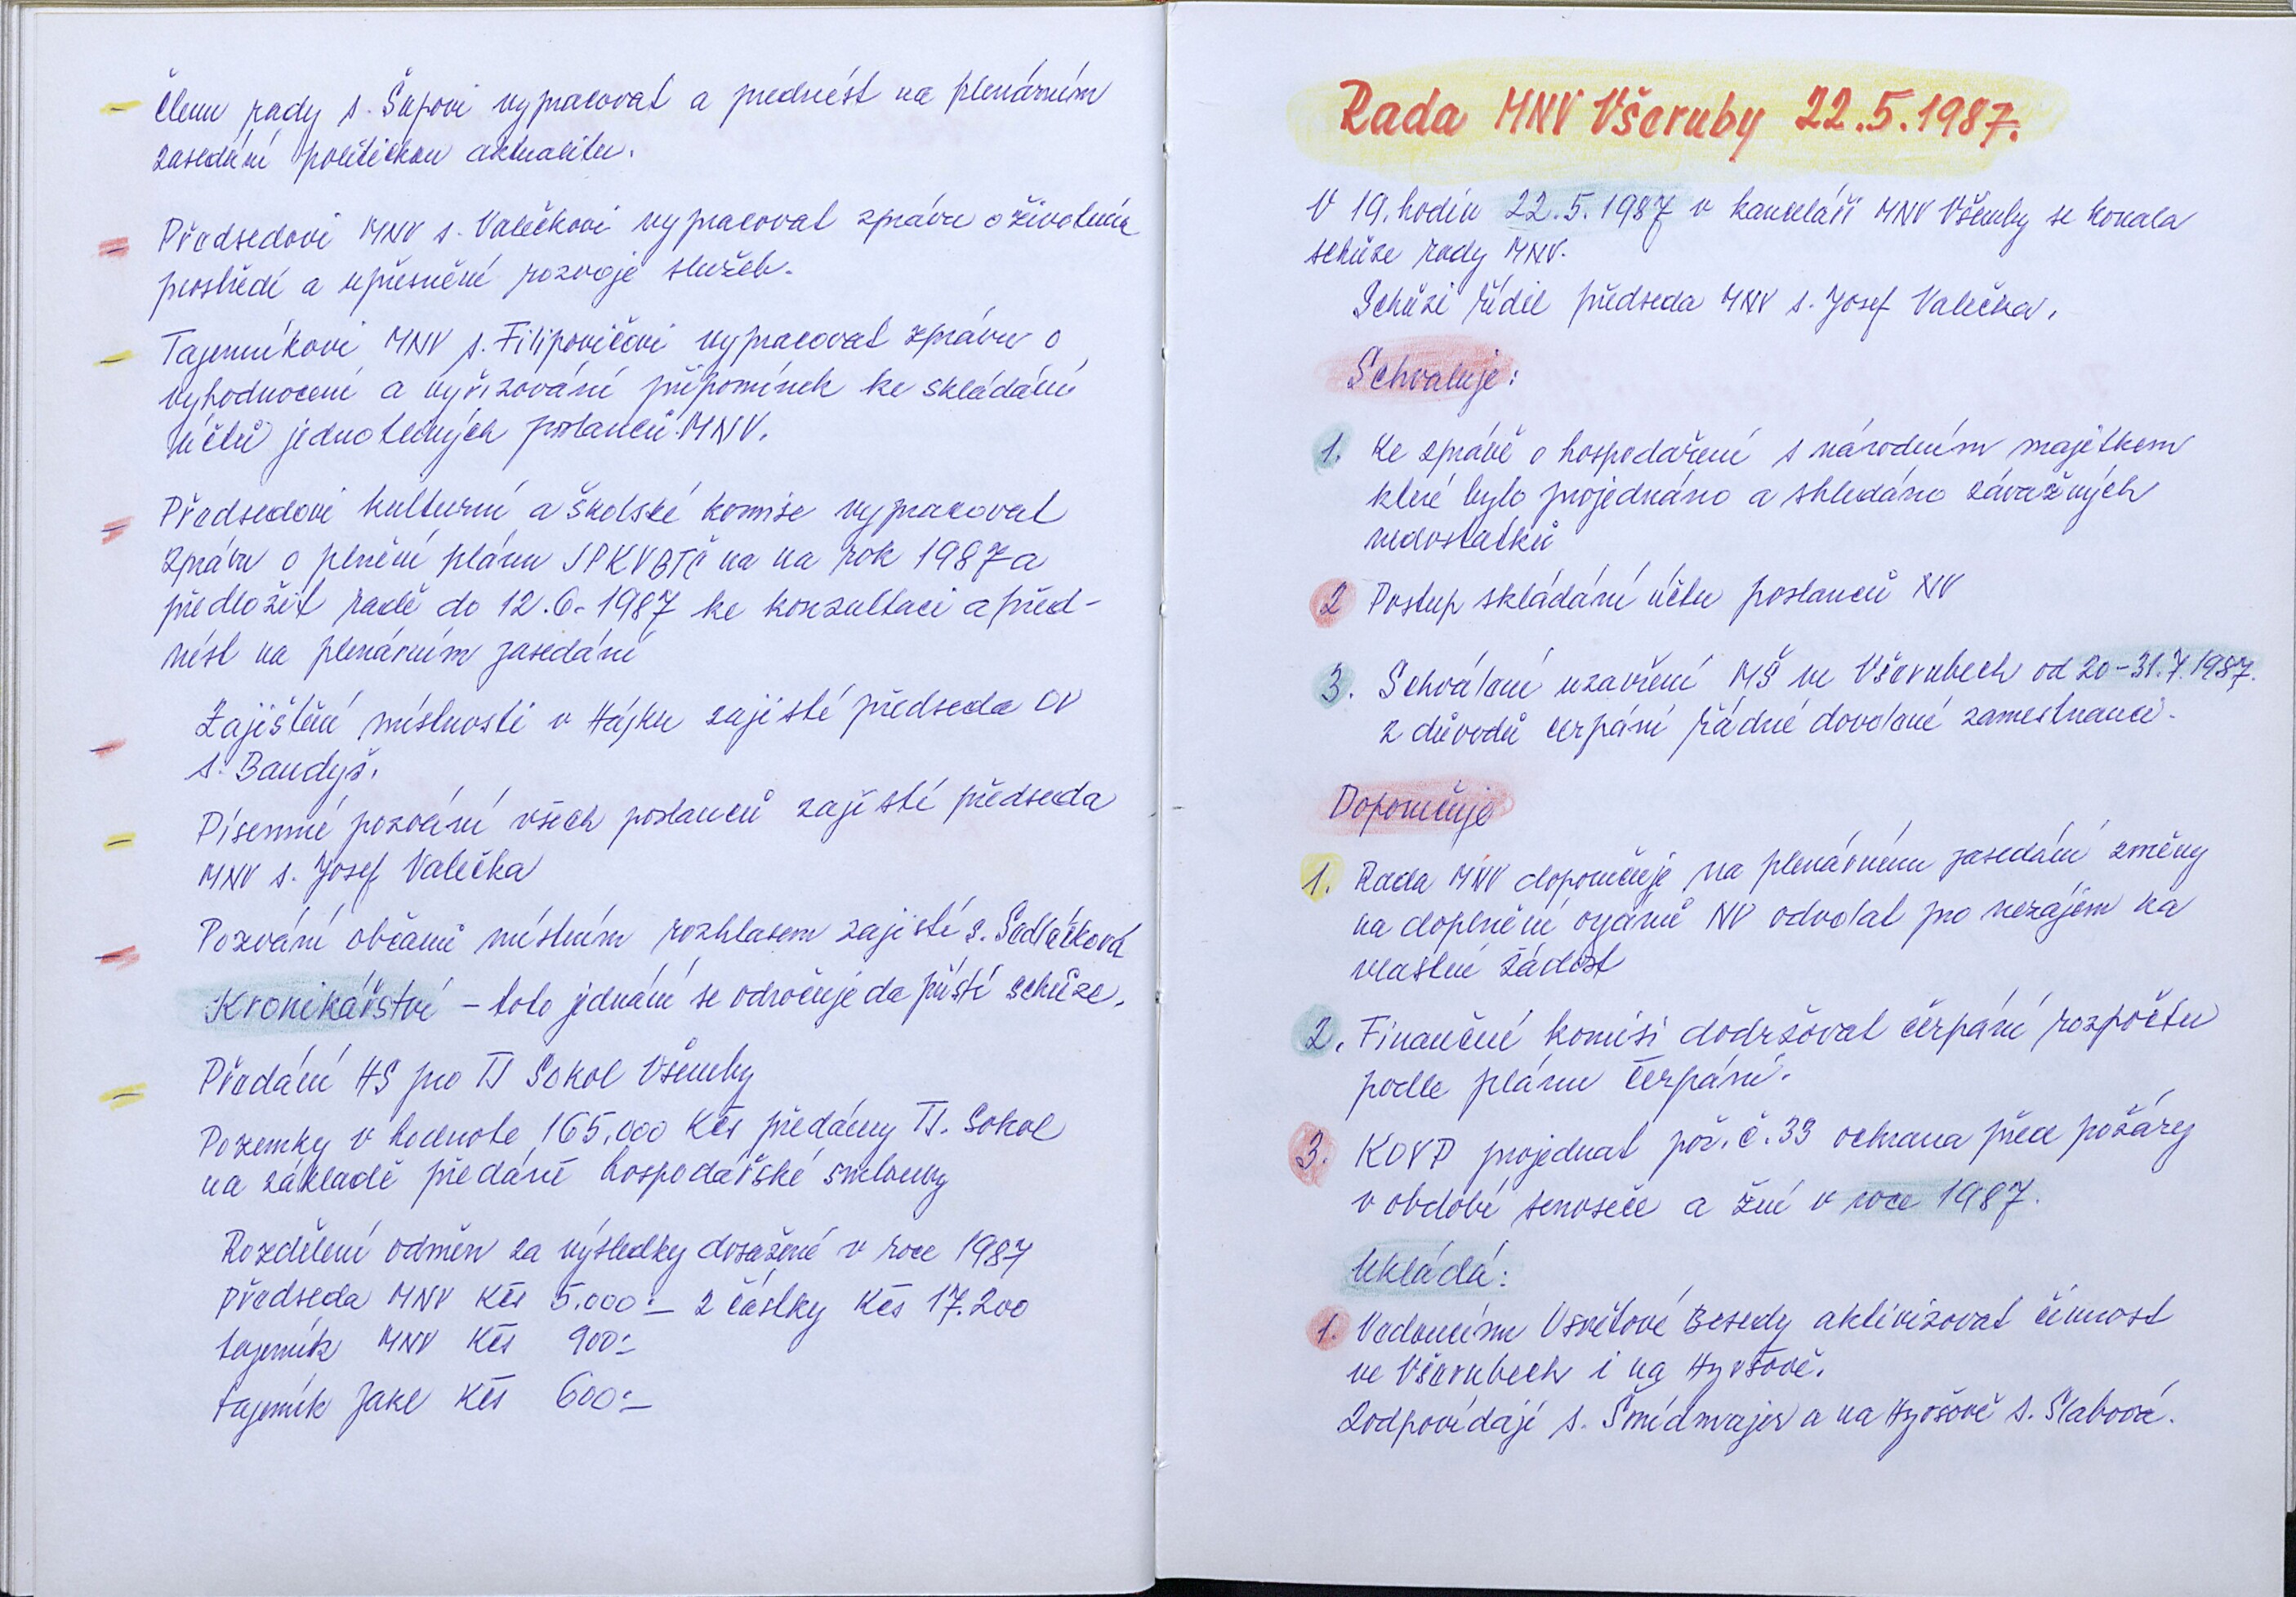 – členu rady s. Šupovi vypracovat a prednést na plenárním
zasedání politickou aktualitu.
= Předsedovi MNV s. Valečkovi vypracovat zprávu o životním
prostředí a upřesnění rozvoje služeb.
– Tajemníkovi MNV s. Filipovičovi vypracovat zprávu o
vyhodnocení a vyřizování připomínek ke skládání
účtů jednotlivých poslanců MNV.
= Předsedovi kulturní a školské komise vypracovat
zprávu o plnění plánu JPKVBTČ na na rok 1987 a
předložit radě do 12.6.1987 ke konzultaci a před-
nést na plenárním zasedání
– Zajištění místnosti v Hájku zajistí předseda OV
s. Baudyš.
= Písemné pozvání všech poslanců zajistí předseda
MNV s. Josef Valečka
= Pozvání občanů místním rozhlasem zajistí s. Sedláčková
Kronikářství – toto jednání se odročuje da příští schůze.
= Předání HS pro TJ Sokol Všeruby
Pozemky v hodnote 165.000 Kčs předány TJ. Sokol
na základě předáné hospodářské smlouvy
Rozdělení odměn za výsledky dosažené v roce 1987
předseda MNV Kčs 5.000:– z částky Kčs 17.200
tajemník MNV Kčs 900:–
tajemník Jakl Kčs 600:–
Rada MNV Všeruby 22.5.1987.
V 19. hodin 22.5.1987 v kanceláři MNV Všeruby se konala
schůze rady MNV.
Schůzi řídil předseda MNV s. Josef Valečka.
Schvaluje:
1. Ke zprávě o hospodaření s národním majetkem
které bylo projednáno a shledáno závažných
nedostatků
2 Postup skládání účtu poslanců NV
3. Schválení uzavření MŠ ve Všerubech od 20–31.7.1987.
z důvodů cerpání řádné dovolené zamestnanců.
Doporučuje
1. Rada MNV doporučuje na plenárním zasedání změny
na doplnění orgánů NV odvolat pro nezájem na
vlastní žádost
2. Finanční komisi dodržovat čerpání rozpočtu
podle plánu čerpání.
3. KOVP projednat poř. č. 33 ochrana před požáry
v období senoseče a žní v roce 1987.
Ukládá:
1. Vedoucímu Osvětové Besedy aktivizovat činnost
ve Všerubech i na Hyršově.
Zodpovídají s. Šmídmajer a na Hyršově s. Slabová.